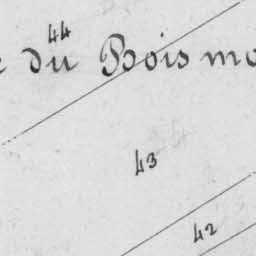 44
du Bois
43
42